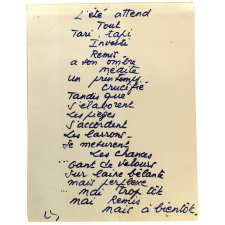 L'été attend
Tout
Tari. tapi
Investi
Remis
a son ombre
Médite
un printemps
crucifié
Tandis que
S'élaborent
Les pièges
S'accordent
Les larrons
Se mesurent
Les Chances
...Gant de velours
Sur laine bêlante
mais perplexe
... mai Trop tôt
... mai Remis
mais à bientôt.